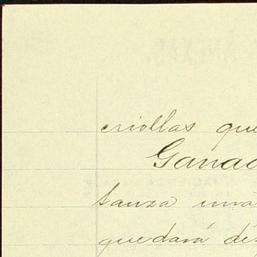 criollas que
Ganad
tanza una
quedará des